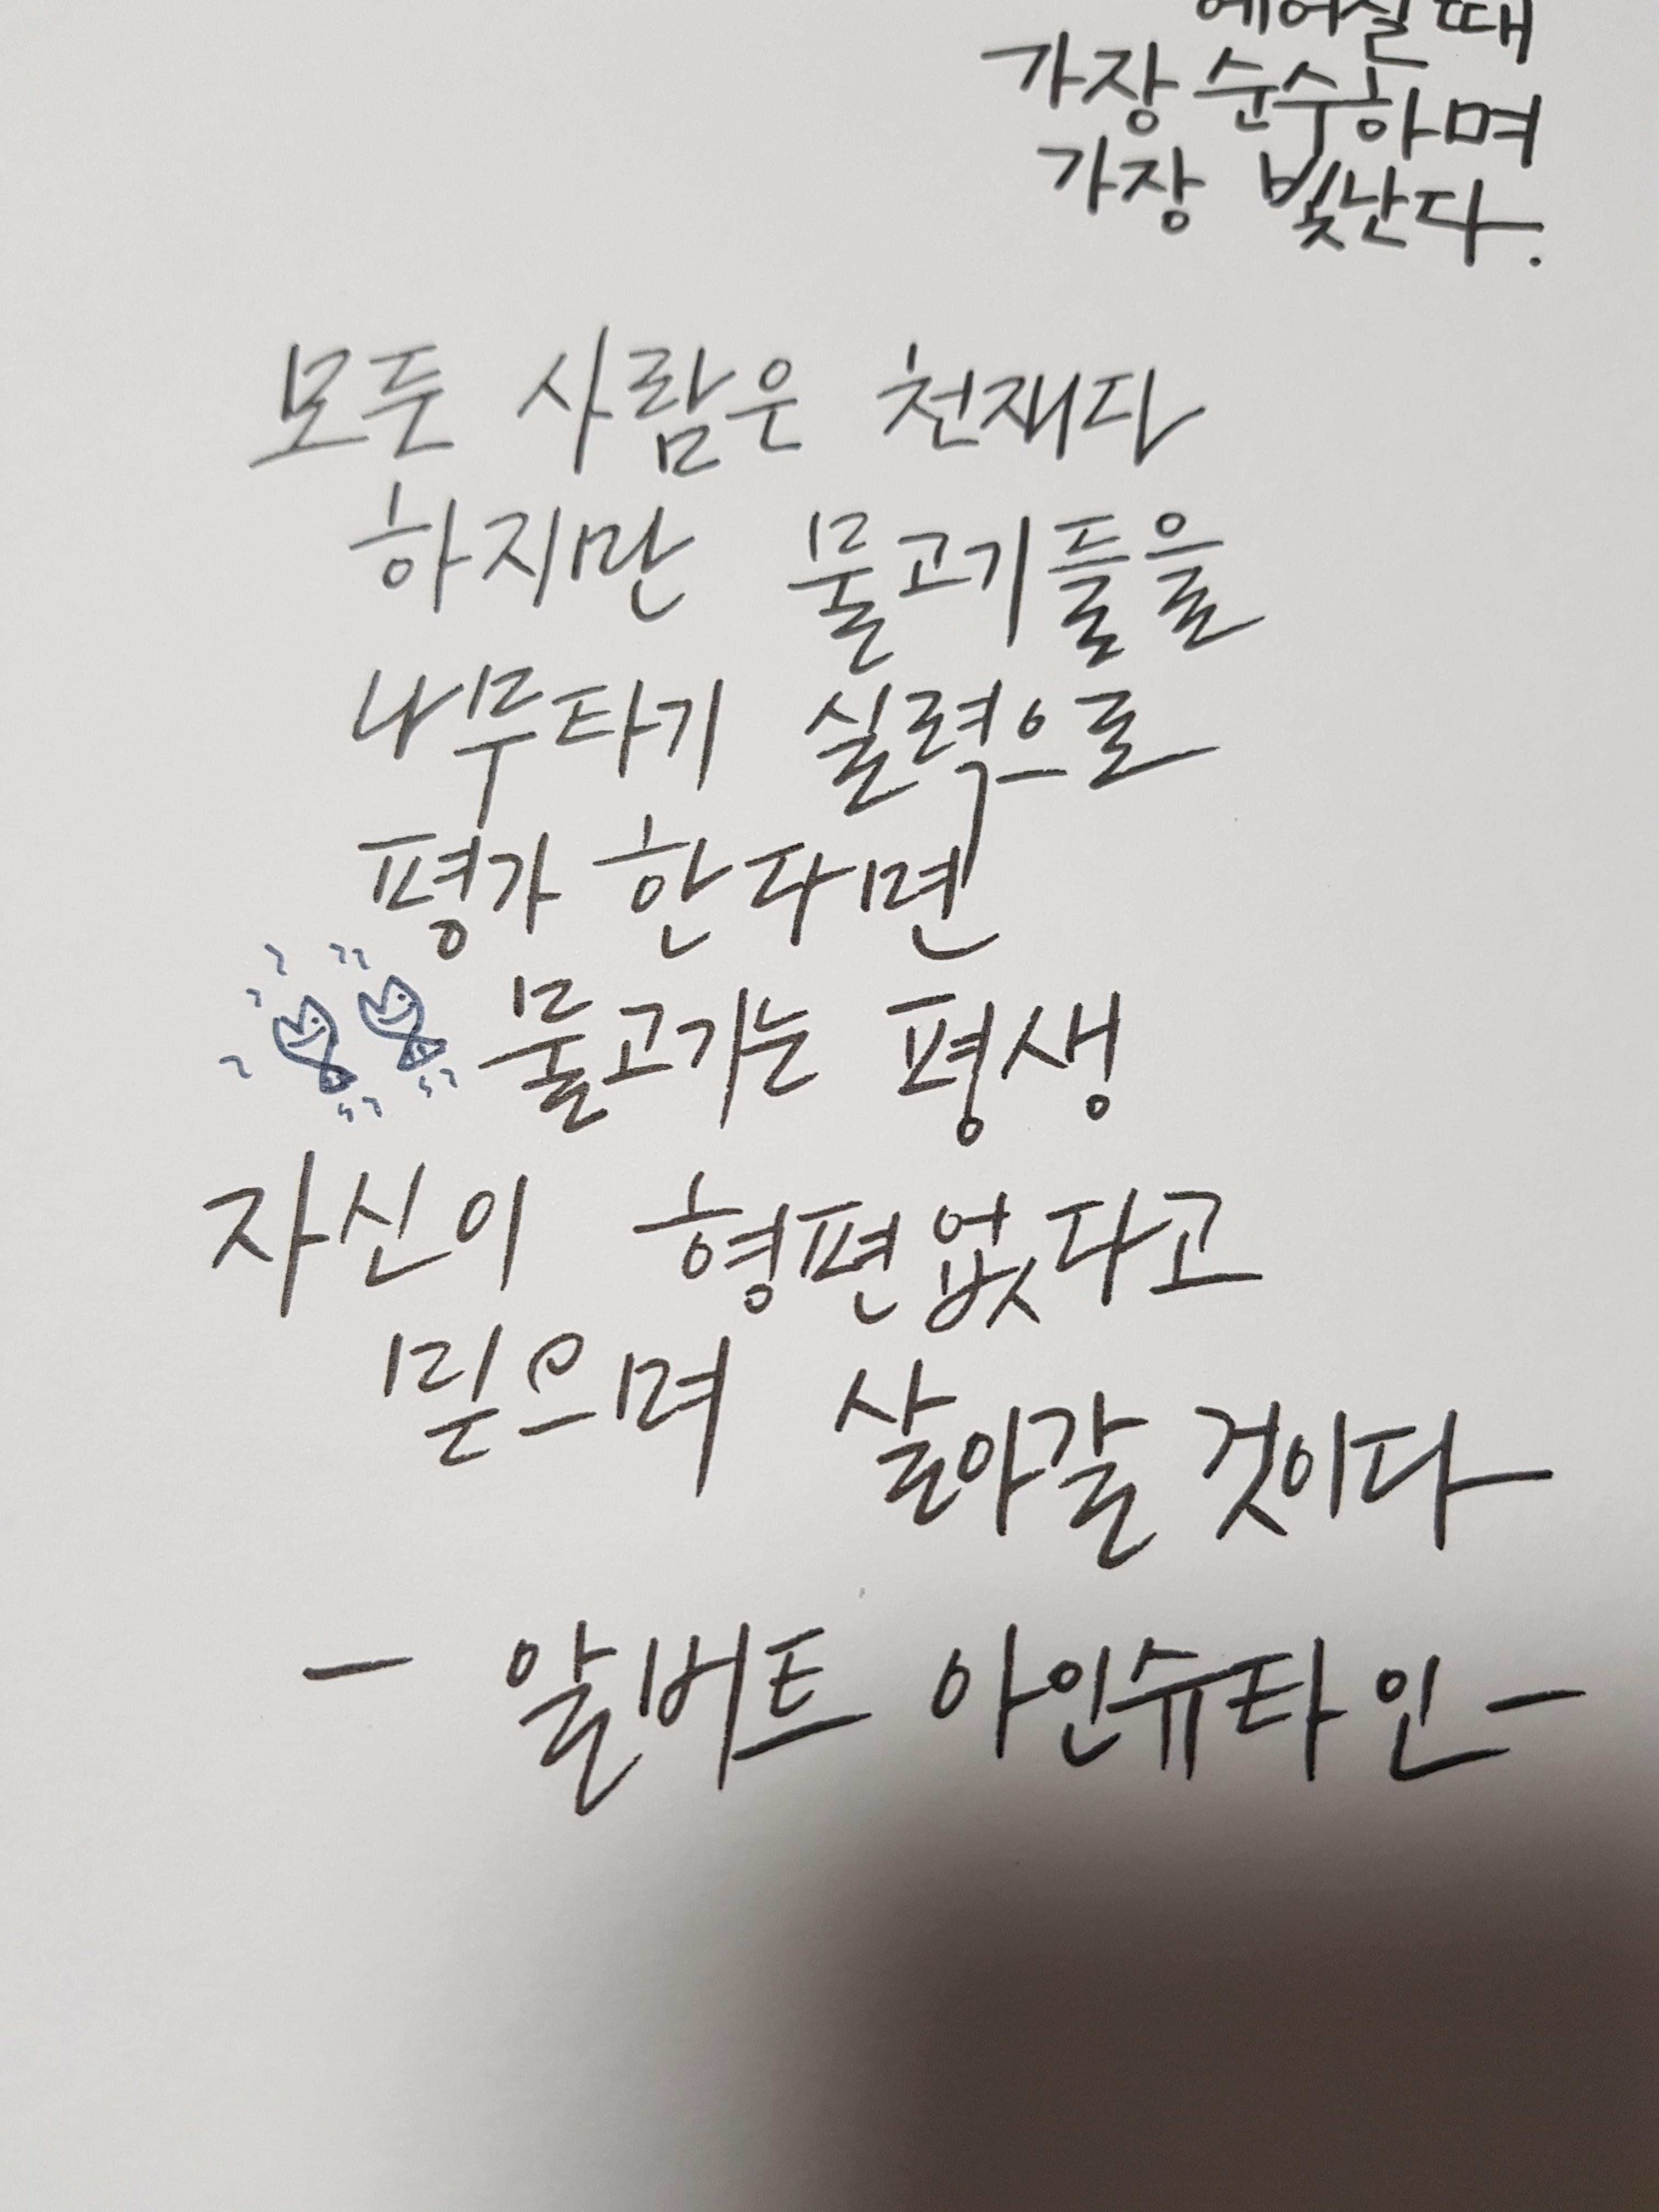 가장 순수하며
가장 빛난다.
모든 사람은 천재다
하지만 물고기들을
나무타기 실력으로
평가 한다면
물고기는 평생
자신이 형편없다고
믿으며 살아갈 것이다
- 알버트 아인슈타인 -